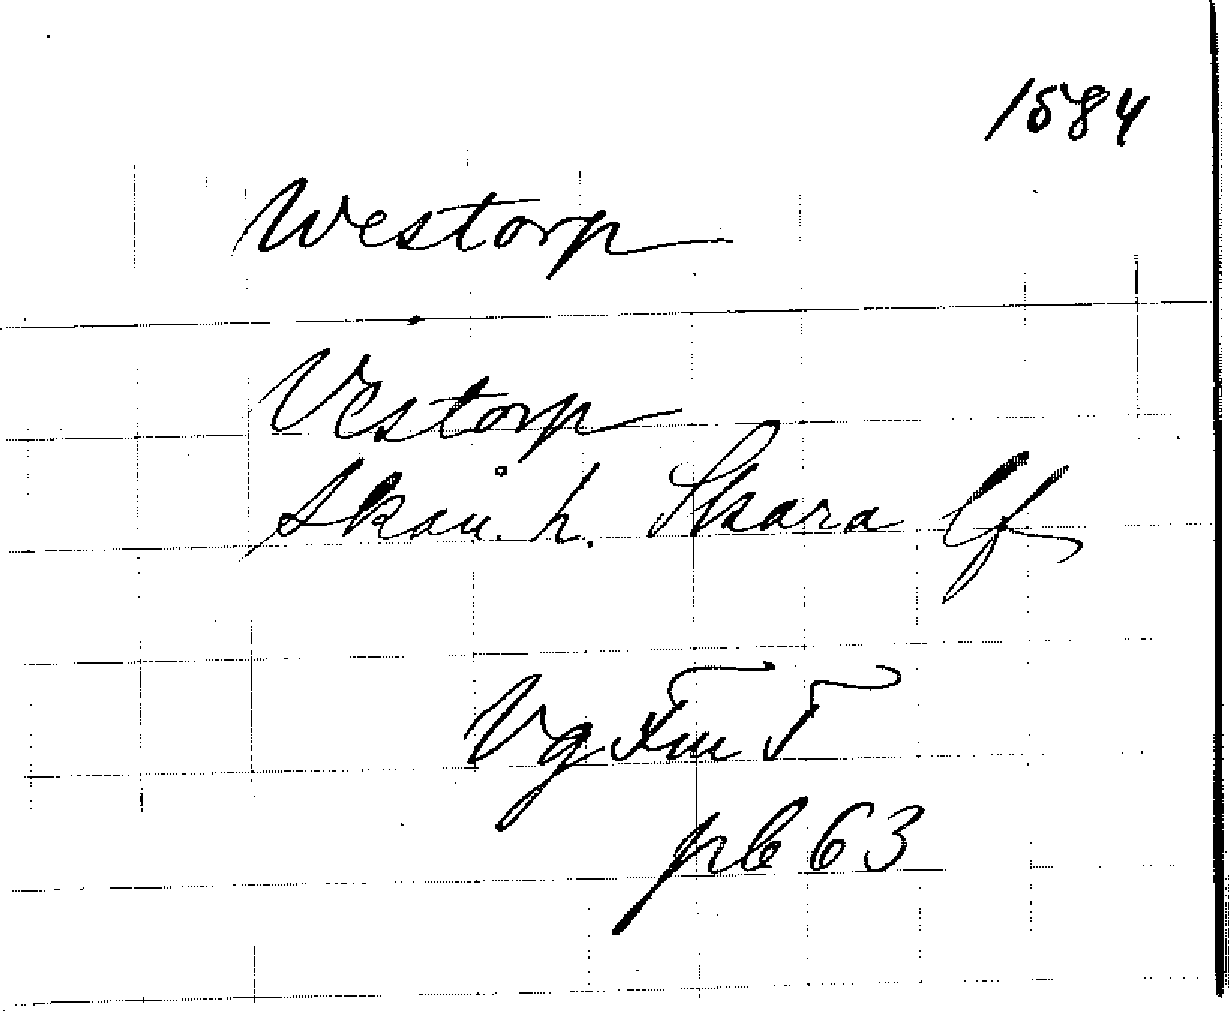 1584
Westorp
Vestorp
Skån. h. Skara lf
Vg Fm T
pb 63